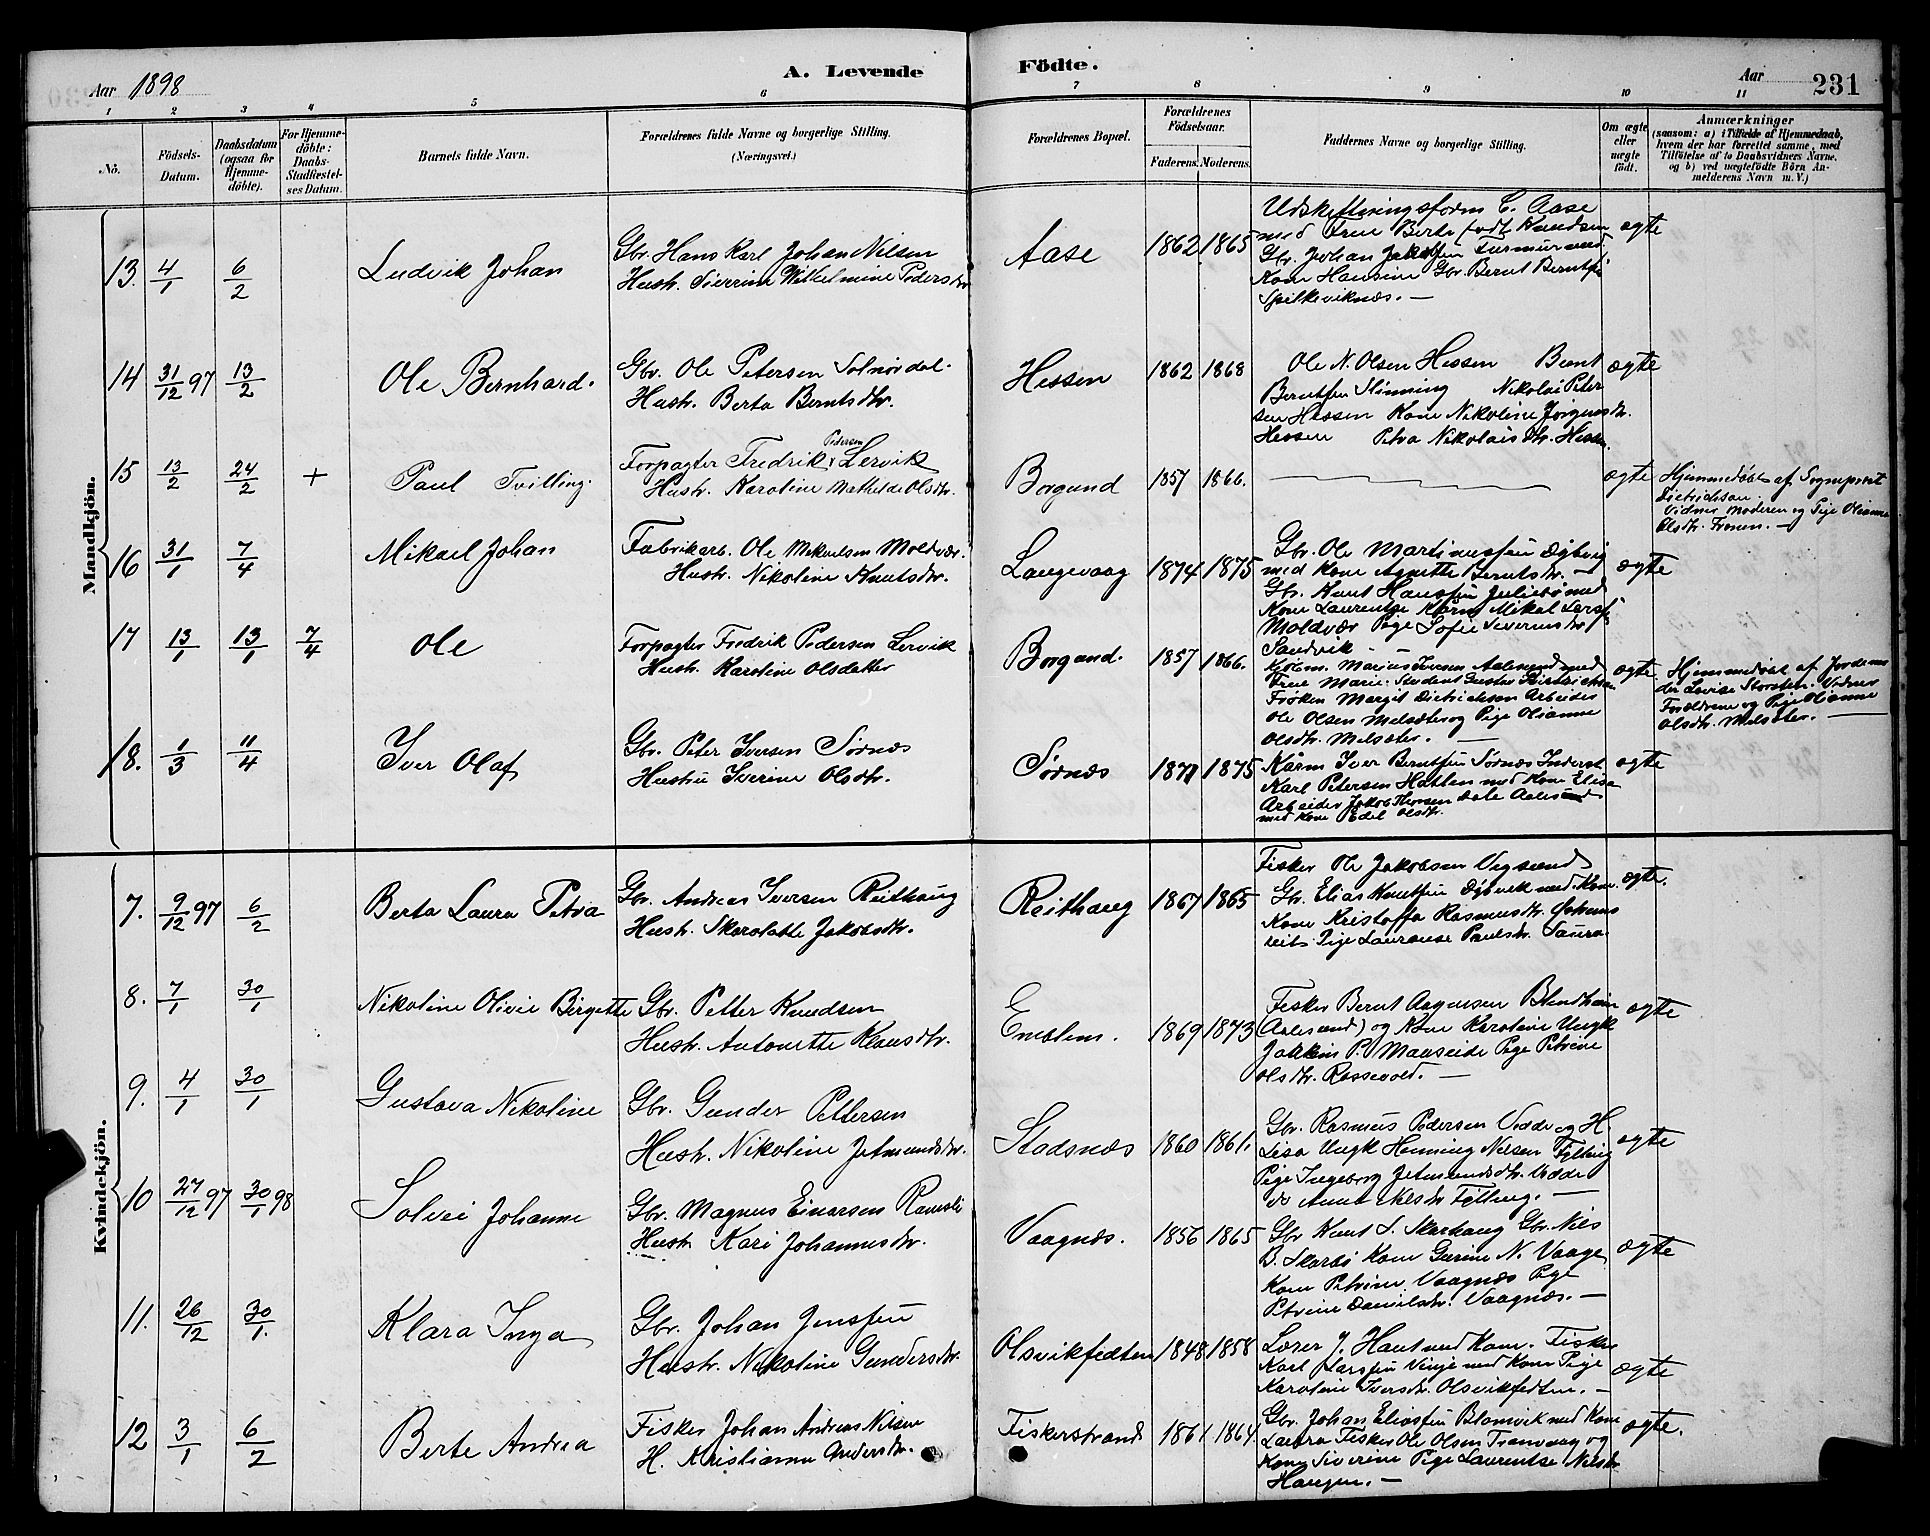 Aar 1898
A. Levende
Födte.
Aar
231
1 2 3 4 5 6 7 8 9 10 11
No.
Födsels-Datum.
Daabsdatum (ogsaa for Hjemmedöbte).
For Hjemmedöbte: Daabs-Stadfæstelses Datum.
Barnets fulde Navn.
Forældrenes fulde Navne og borgerlige Stilling.
(Næringsvei.)
Forældrenes Bopæl.
Forældrenes Födselsaar.
Faderens. Moderens.
Faddernes Navne og borgerlige Stilling.
Om ægte eller uægte födt.
Anmærkninger
(saasom: a) i Tilfælde af Hjemmedaab, hvem der har forrettet samme, med Tilföielse af to Daabsvidners Navne, og b) ved uegtefödte Börn Anmelderens Navn m. V.)
Mandkjön.
13. 4/1 6/2 Ludvik Johan
Gbr. Hans Karl Johan Nilsen
Hustr. Siverine Wilhelmine Pedersdtr
Aase 1862 1865
Udskiftningsform C. Aase
med Frue Berte født Knudsen
Gbr. Johan Jakobsen
Kone Hansine Gbr. Bernt Berntsen
Spilkeviknæs. —
ægte
14 31/12 97 13/2 Ole Bernhard.
Gbr. Ole Petersen Solnørdal.
Hustr. Berta Berntsdtr.
Hessen 1862 1868
Ole N. Olsen Hessen Bernt
Berntsen Slinning Nikolai Peter
sen Hessen Kone Nikoline Jørgensdtr.
Hessen Petra Nikolaisdtr. Hessen
ægte
15 13/2 24/2 + Paul Tvilling.
Forpagter Fredrik Pedersen Lervik
Hustr. Karoline Mathilde Olsdtr.
Borgund 1857 1866.
ægte
Hjemmedøbt af Sogneprest
Dietrichson.
Vidner Moderen og Pige Olianne
Olsdtr. —
16 31/1 7/4 Mikael Johan
Fabrikarb. Ole Mikaelsen Moldvær.
Hustr. Nikoline Knutsdtr.
Langevaag 1874 1875
Gbr. Ole Martinussen Dybvig
med Kone Agnette Berntsdtr. —
Gbr. Knut Hanssen Juliebø med
Kone Laurentse Kaarm. Mikal Larss.
Moldvær Pige Sofie Severinsdtr
Sandvik —
ægte
17 13/1 13/1 7/4 Ole
Forpagter Fredrik Pedersen Lervik
Hustr. Karoline Olsdatter
Borgund. 1857 1866.
Kjøbm. Marius Iversen Aalesund med
Frue Marie. Student Gustav Dietrichson
Frøken Margit Dietrichson Arbeider
Ole Olsen Melsæter og Pige Olianne
Olsdtr. Melsæter. —
ægte
Hjemmedøbt af Jordemo
der Lovise Storsten. Vidner
Forældrene og Pige Olianne
Olsdtr. Melsæter. —
18. 1/3 11/4 Iver Olaf
Gbr. Peter Iversen Sørnæs
Hustru Iverine Olsdtr.
Sørnæs 1871 1875
Kaarm Iver Berntsen Sørnæs Inderst
Karl Petersen Hatlen med Kone Elisa
Arbeider Jakob Thorsen Aalesund
med Kone Olsdtr.
ægte
Kvindekjön.
7. 9/12 97 6/2 Berta Laura Petra
Gbr. Andreas Iversen Reithaug
Hustr. Skarolatte Jakobsdtr.
Reithaug 1867 1865
Fisker Ole Jakobsen Vegsund
Gbr. Elias Knutsen Dybvik med Kone
Kone Kristoffa Rasmusdtr.
Pige Lauranse Paulsdtr.
ægte.
8. 7/1 30/1 Nikoline Olivie Birgette
Gbr. Petter Knudsen
Hustr. Antonette Klausdtr.
Emblem. 1869 1873
Fisker Bernt Aagesen Blindheim
(Aalesund) og Kone Karoline Ungk
Joakim P. Mauseide Pige Petrine
Olsdtr. Rossevold. —
ægte
9. 4/1 30/1 Gustava Nikoline
Gbr. Gunder Pettersen
Hustr. Nikoline Jetmundsdtr.
Stadsnæs 1860 1861.
Gbr. Rasmus Pedersen Vedde og H.
Lisa Ungk Henning Nilsen Fylling
Pige Ingeborg Jetmundsdtr. Vedde
do Anne Nilsdtr Fylling. —
ægte
10 27/12 97 30/1 98 Solvei Johanne
Gbr. Magnus Einarsen Ramsli
Hustr Kari Johannesdtr.
Vaagnæs. 1856 1865
Gbr Knut S. Skarhaug Gbr. Nils
B. Skarbø Kone Gurine N. Vaage
Kone Petrine Vaagnæs Pige
Petrine Danielsdtr. Vaagnæs. —
ægte
11. 26/12 30/1. Klara Inga
Gbr. Johan Jenssen
Hustr. Nikoline Gundersdtr.
Olsvikfedten 1848 1858
Lærer J. Hant med Kone. Fisker
Karl Larssen Vinje med Kone Pige
Karoline Iversdtr. Olsvikfedten. —
ægte
12 3/1 6/2 Berte Andrea
Fisker Johan Andreas Nilsen
H. Kristianne Andersdtr.
Fiskerstrand 1861 1864
Gbr. Johan Eliassen Blomvik med Kone
Laura Fisker Ole Olsen Tranvaag og
Kone Siverine Pige Laurentse Nilsdtr
Haugen. —
ægte.